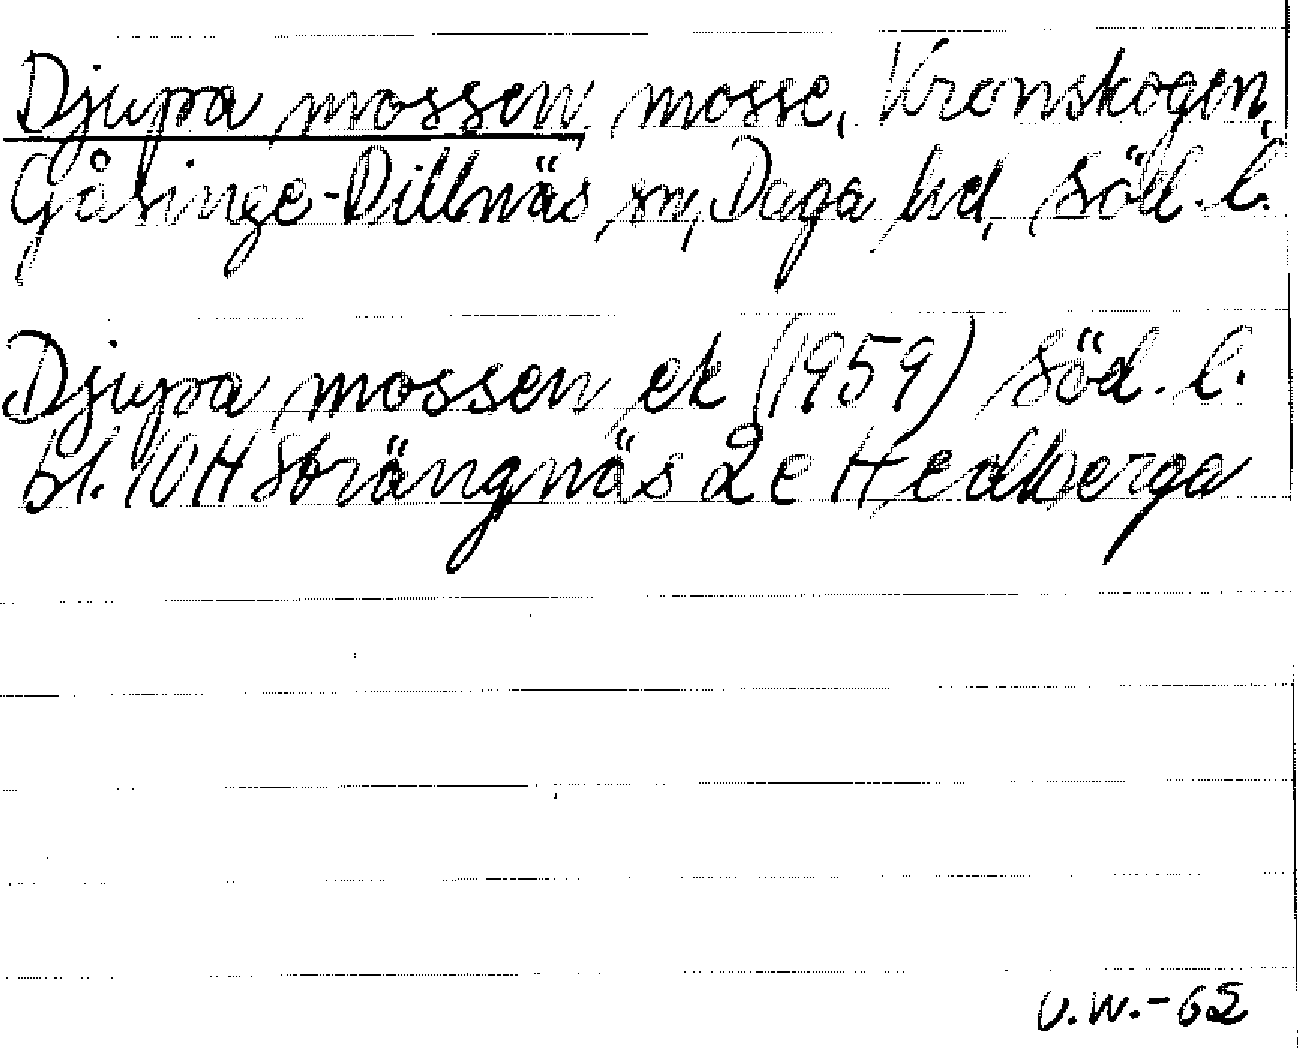 Djupa mossen, mosse, Kronskogen,
Gåsinge-Dillnäs sn, Daga hd, Söd. l.
Djupa mossen ek (1959) Söd. l.
bl. 10H Strängnäs 2e Hedberga
U.W.-62